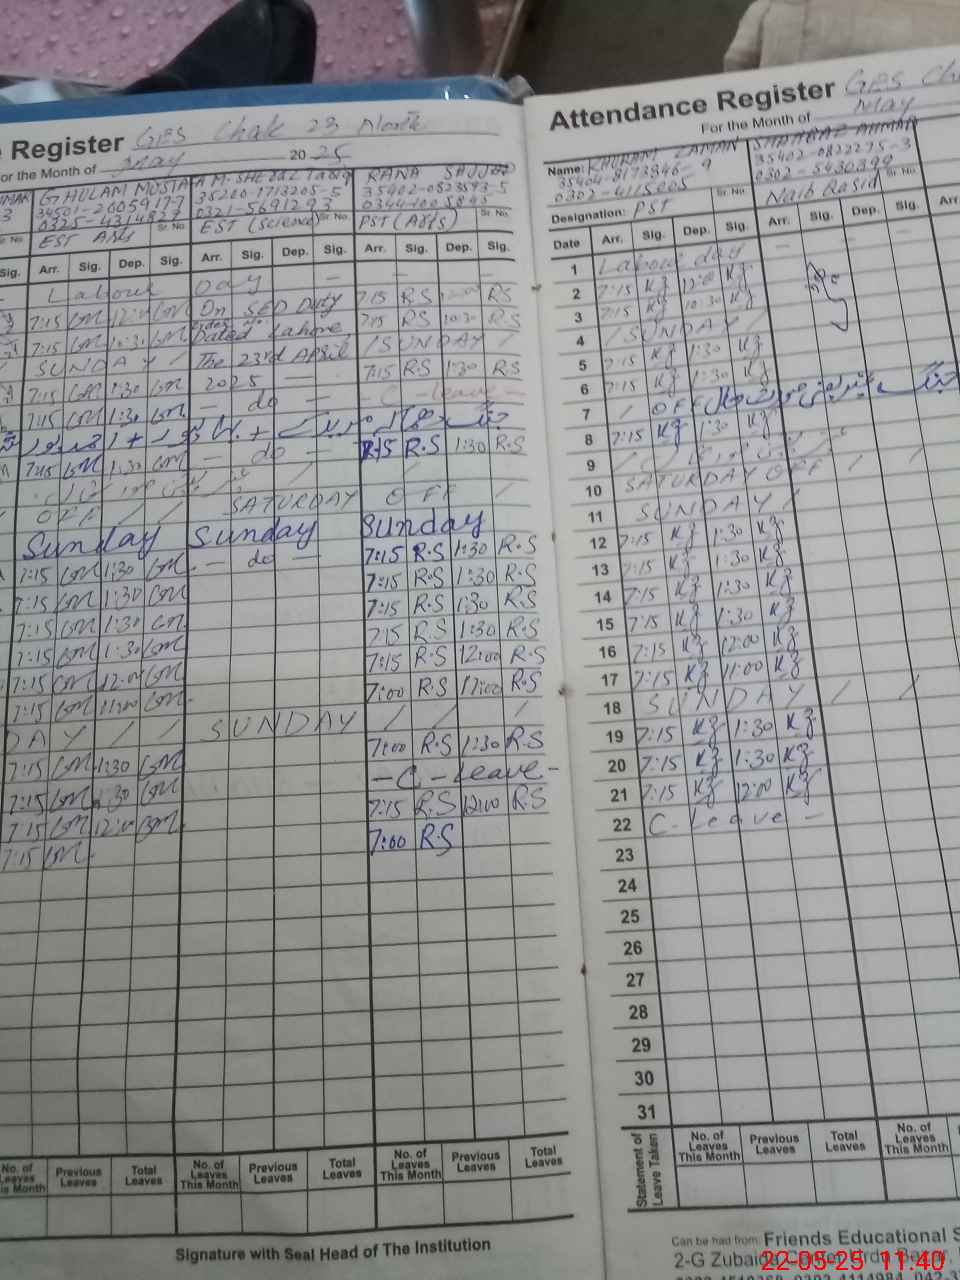 e Register GPS Chak 23 North
For the Month of May 2025
GHULAM MUSTA
34501-2605917-7
0325-4314827
EST Arts
Sr. No.
35200-1713205-5
0321-5691293
EST (Science)
Sr. No.
RANA SAJJAD
35402-0823593-5
PST (Arts)
Sr. No.
Sig. Arr. Sig. Dep. Sig. Arr. Sig. Dep. Sig. Arr. Sig. Dep. Sig.
Labour Day - - -
7:15 GM 12:00 GM On SED Duty 7:15 RS 12:00 RS
7:15 GM 10:30 GM Dated Lahore 7:15 RS 10:30 RS
SUNDAY / The 23rd April / SUNDAY /
7:15 GM 1:30 GM 2025 - 7:15 RS 1:30 RS
7:15 GM 1:30 GM - do - - C - leave -
7:15 GM 1:30 GM - do - 7:15 R.S 1:30 R.S
OFF / / SATURDAY OFF /
Sunday Sunday Sunday
7:15 GM 1:30 GM - do - 7:15 R.S 1:30 R.S
7:15 GM 1:30 GM 7:15 R.S 1:30 R.S
7:15 GM 1:30 GM 7:15 R.S 1:30 R.S
7:15 GM 1:30 GM 7:15 R.S 1:30 R.S
7:15 GM 12:00 GM 7:15 R.S 12:00 R.S
7:15 GM 11:00 GM 7:00 R.S 11:00 R.S
DAY / / SUNDAY / / /
7:15 GM 1:30 GM 7:00 R.S 1:30 R.S
7:15 GM 1:30 GM - C - Leave -
7:15 GM 12:00 GM 7:15 R.S 12:00 R.S
7:15 GM 7:00 R.S
No. of Leaves This Month Previous Leaves Total Leaves No. of Leaves This Month Previous Leaves Total Leaves No. of Leaves This Month Previous Leaves Total Leaves
Signature with Seal Head of The Institution
Attendance Register GPS Ch
For the Month of May
Name: KHURAM ZAMAN
35404-8173846-9
0302-4115005
Designation: PST
Sr. No.
SHAHBAZ AHMAD
35402-0822275-3
0302-5430399
Naib Qasid
Sr. No.
Date Arr. Sig. Dep. Sig. Arr. Sig. Dep. Sig. Arr.
1 Labour day - - -
2 7:15 KZ 12:00 KZ
3 7:15 KZ 10:30 KZ
4 / SUNDAY /
5 7:15 KZ 1:30 KZ
6 7:15 KZ 1:30 KZ
7 / OFF
8 7:15 KZ 1:30 KZ
9
10 SATURDAY OFF / /
11 SUNDAY /
12 7:15 KZ 1:30 KZ
13 7:15 KZ 1:30 KZ
14 7:15 KZ 1:30 KZ
15 7:15 KZ 1:30 KZ
16 7:15 KZ 12:00 KZ
17 7:15 KZ 11:00 KZ
18 SUNDAY / /
19 7:15 KZ 1:30 KZ
20 7:15 KZ 1:30 KZ
21 7:15 KZ 12:00 KZ
22 C - Leave -
23
24
25
26
27
28
29
30
31
Statement of Leave Taken
No. of Leaves This Month Previous Leaves Total Leaves No. of Leaves This Month
Can be had from: Friends Educational S
2-G Zubaida Center Urdu Bazar,
22-05-25 11:40